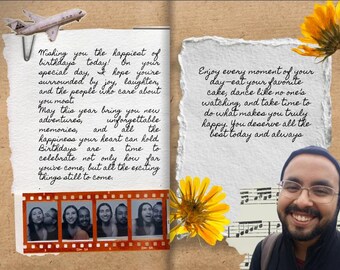 Wishing you the happiest of
birthdays today! On your
special day, I hope you're
surrounded by joy, laughter,
and the people who care about
you most.
May this year bring you new
adventures, unforgettable
memories, and all the
happiness your heart can hold.
Birthdays are a time to
celebrate not only how far
you've come, but all the exciting
things still to come.
Enjoy every moment of your
day—eat your favorite
cake, dance like no one's
watching, and take time to
do what makes you truly
happy. You deserve all the
best today and always